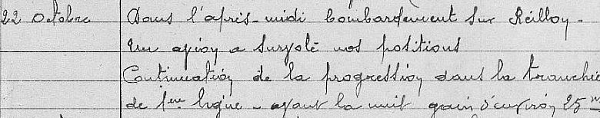 22 Octobre Dans l'après-midi bombardement sur Reillon.
Un avion a survolé nos positions
Continuation de la progression dans la tranchée
de 1ère ligne - avant la nuit gain d'environ 25 m